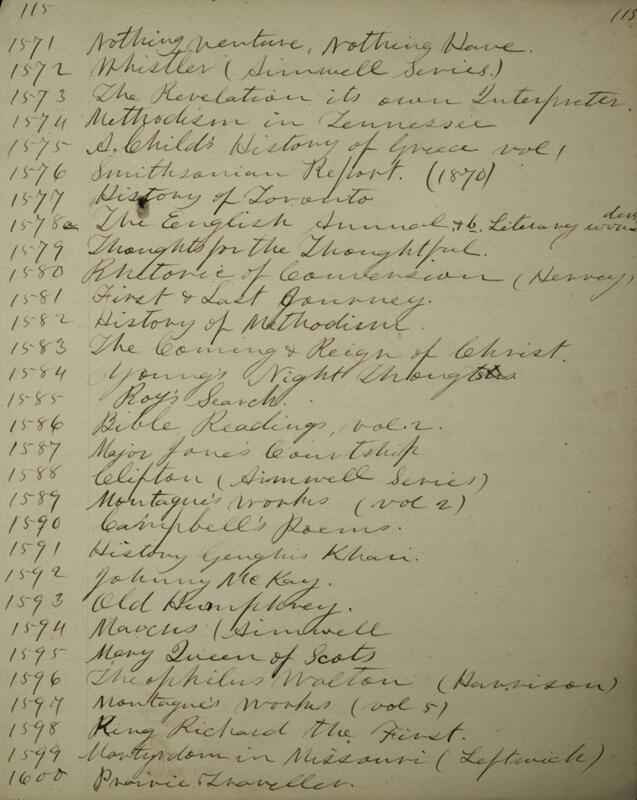 115 115
1571 Nothing Venture, Nothing Have.
1572 Whistler (Aimwell Series.)
1573 The Revelation its own Interpreter.
1574 Methodism in Tennessee
1575 A Child's History of Greece vol 1
1576 Smithsonian Report. (1870)
1577 History of Toronto
1578a The English Annual & b. Literary
1579 Thoughts for the Thoughtful.
1580 Rhetoric of Conversion (Hervey)
1581 First & Last Journey.
1582 History of Methodism.
1583 The Coming & Reign of Christ.
1584 Young's Night Thoughts
1585 Roy's Search.
1586 Bible Readings, vol. 2.
1587 Major Jones Courtship
1588 Clifton (Aimwell Series)
1589 Montague's Works (vol 2)
1590 Campbell's Poems.
1591 History Genghis Khan.
1592 Johnny McKay.
1593 Old Humphrey.
1594 Marcus (Aimwell
1595 Mary Queen of Scots
1596 Theophilus Walton (Harrison)
1597 Montague's Works (vol 5)
1598 King Richard the First.
1599 Martyrdom in Missouri (Leftwich)
1600 Prairie Traveller.